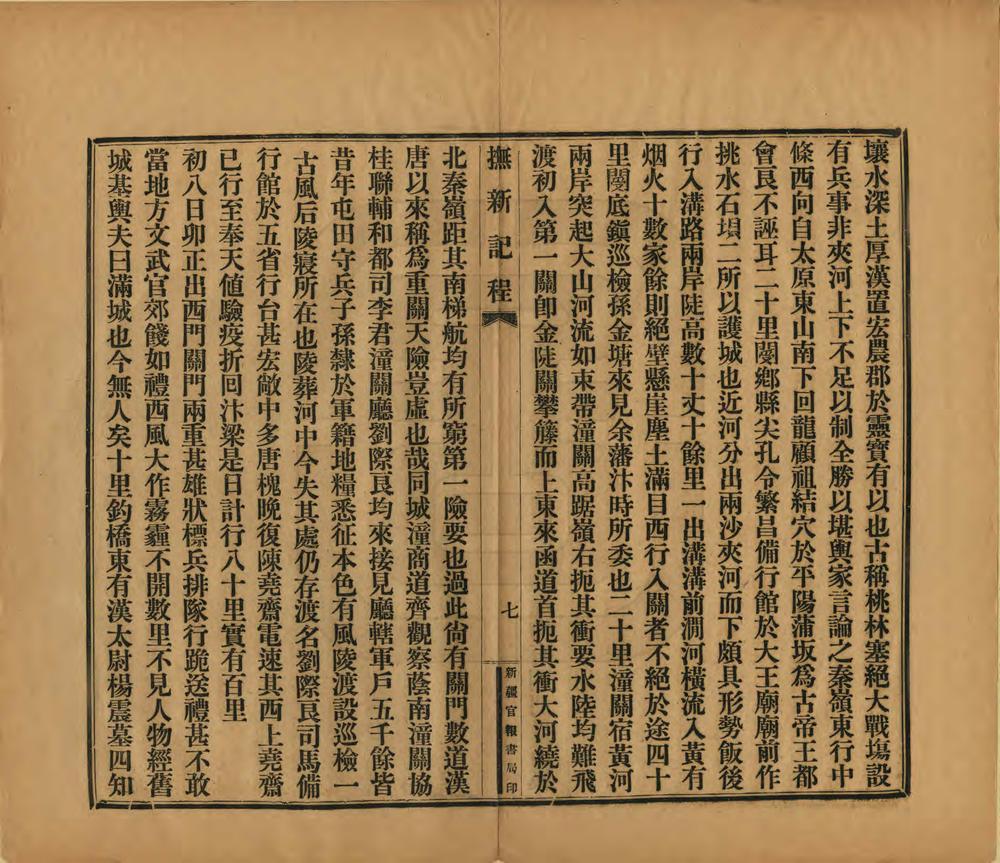 壤水深土厚漢置宏農郡於靈寳有以也古稱桃林塞絕大戰塲設
有兵事非夾河上下不足以制全勝以堪輿家言論之秦嶺東行中
條西向自太原東山南下回龍顧祖結穴於平陽蒲坂爲古帝王都
會艮不誣耳二十里閿鄉縣尖孔令繁昌備行館於大王廟廟前作
挑水石埧二所以護城也近河分出兩沙夾河而下頗具形勢飯後
行入溝路兩岸陡高數十丈十餘里一出溝溝前澗河橫流入黃有
烟火十數家餘則絕壁懸崖塵土滿目西行入關者不絕於途四十
里閿底鎭巡檢孫金塘來見余藩汴時所委也二十里潼關宿黃河
兩岸突起大山河流如束帶潼關高踞嶺右扼其衝要水陸均難飛
渡初入第一關卽金陡關攀籐而上東來函道首扼其衝大河繞於
撫新記程
七
新疆官報書局印
北秦嶺距其南梯航均有所窮第一險要也過此尙有關門數道漢
唐以來稱爲重關天險豈虛也哉同城潼商道齊觀察蔭南潼關協
桂聯輔和都司李君潼關廳劉際艮均來接見廳轄軍戶五千餘皆
昔年屯田守兵子孫隸於軍籍地糧悉征本色有風陵渡設巡檢一
古風后陵寢所在也陵葬河中今失其處仍存渡名劉際艮司馬備
行館於五省行台甚宏敞中多唐槐晚復陳堯齋電速其西上堯齋
已行至奉天値驗疫折回汴梁是日計行八十里實有百里
初八日卯正出西門關門兩重甚雄狀標兵排隊行跪送禮甚不敢
當地方文武官郊餞如禮西風大作霧霾不開數里不見人物經舊
城基輿夫曰滿城也今無人矣十里釣橋東有漢太尉楊震墓四知